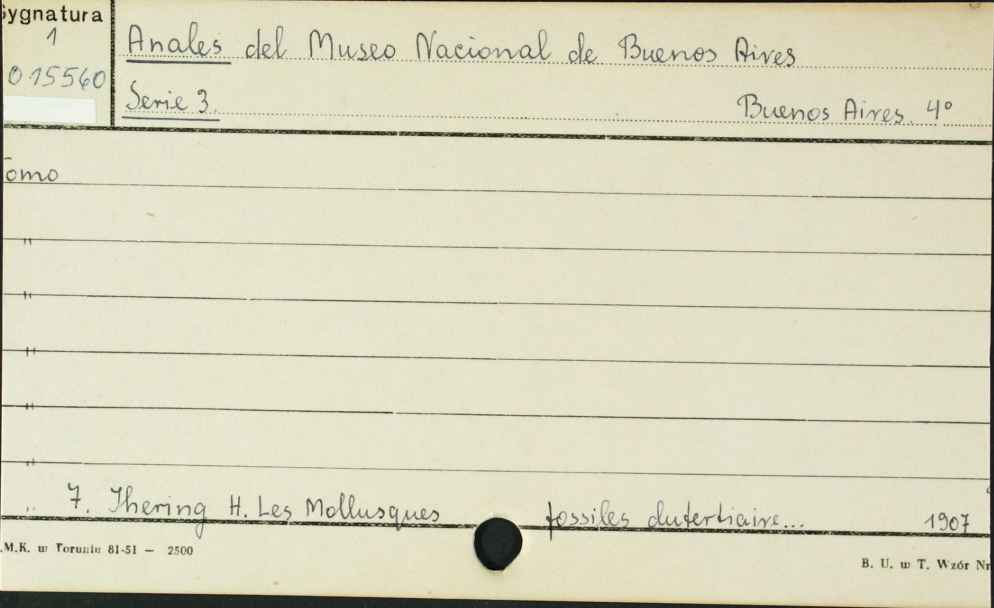 Sygnatura
1
015560
Anales del Museo Nacional de Buenos Aires
Serie 3.
Buenos Aires. 4°
Tomo
"
"
"
"
"
" 7. Ihering H. Les Mollusques fossiles dutertiaire... 1907
.M.K. w Toruniu 81-51 — 2500
B. U. w T. Wzór Nr